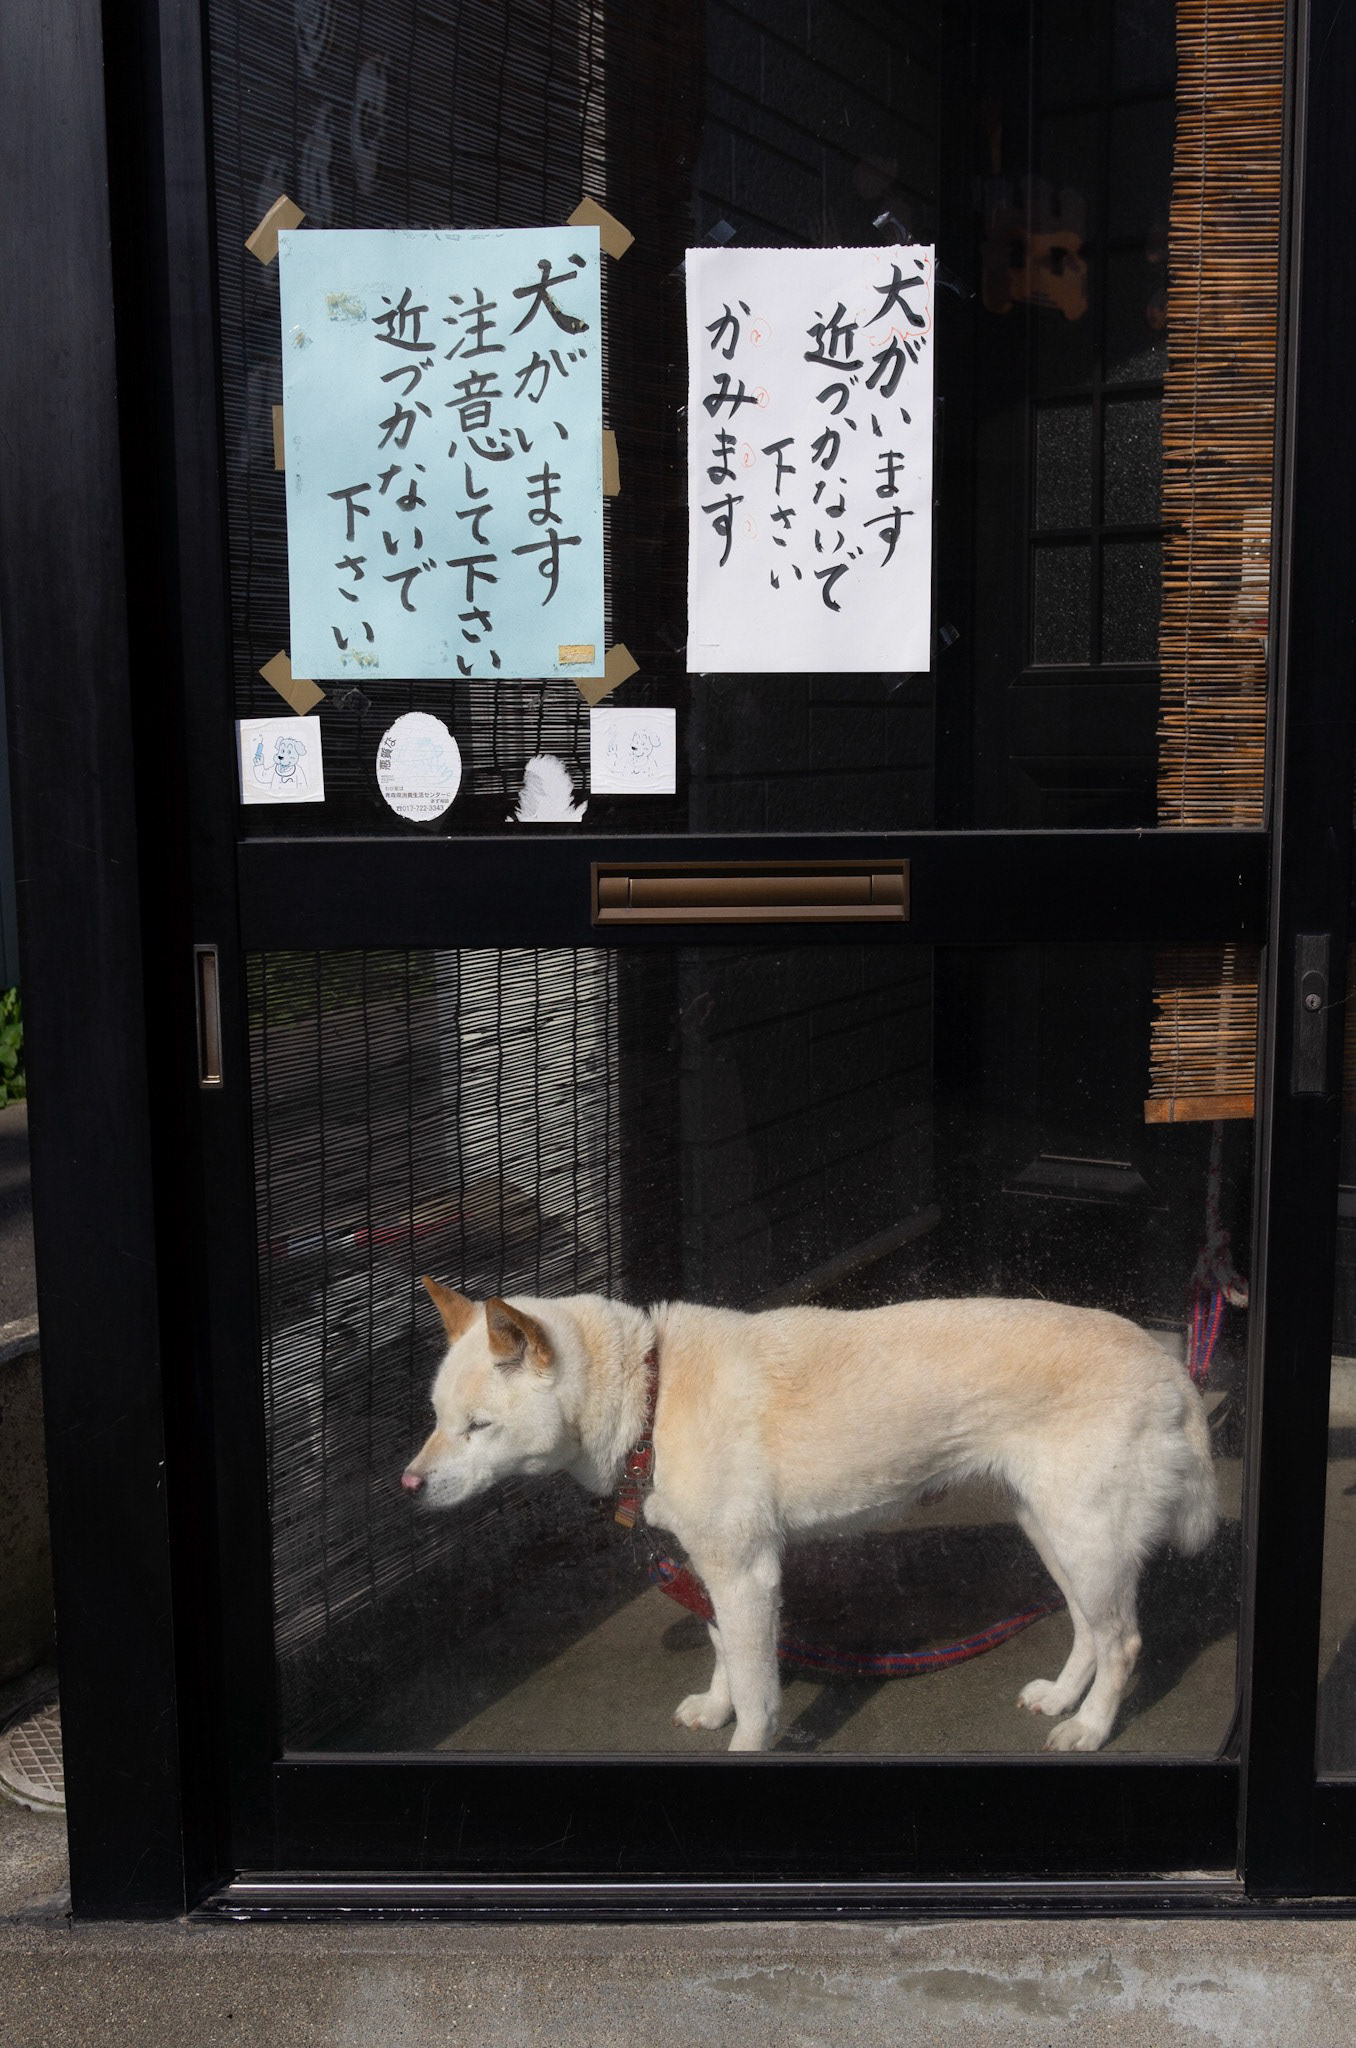 犬がいます
注意して下さい
近づかないで
下さい
犬がいます
近づかないで
下さい
かみます
悪質な
わが家は
青森県消費生活センターに
まず相談
☎017-722-3343